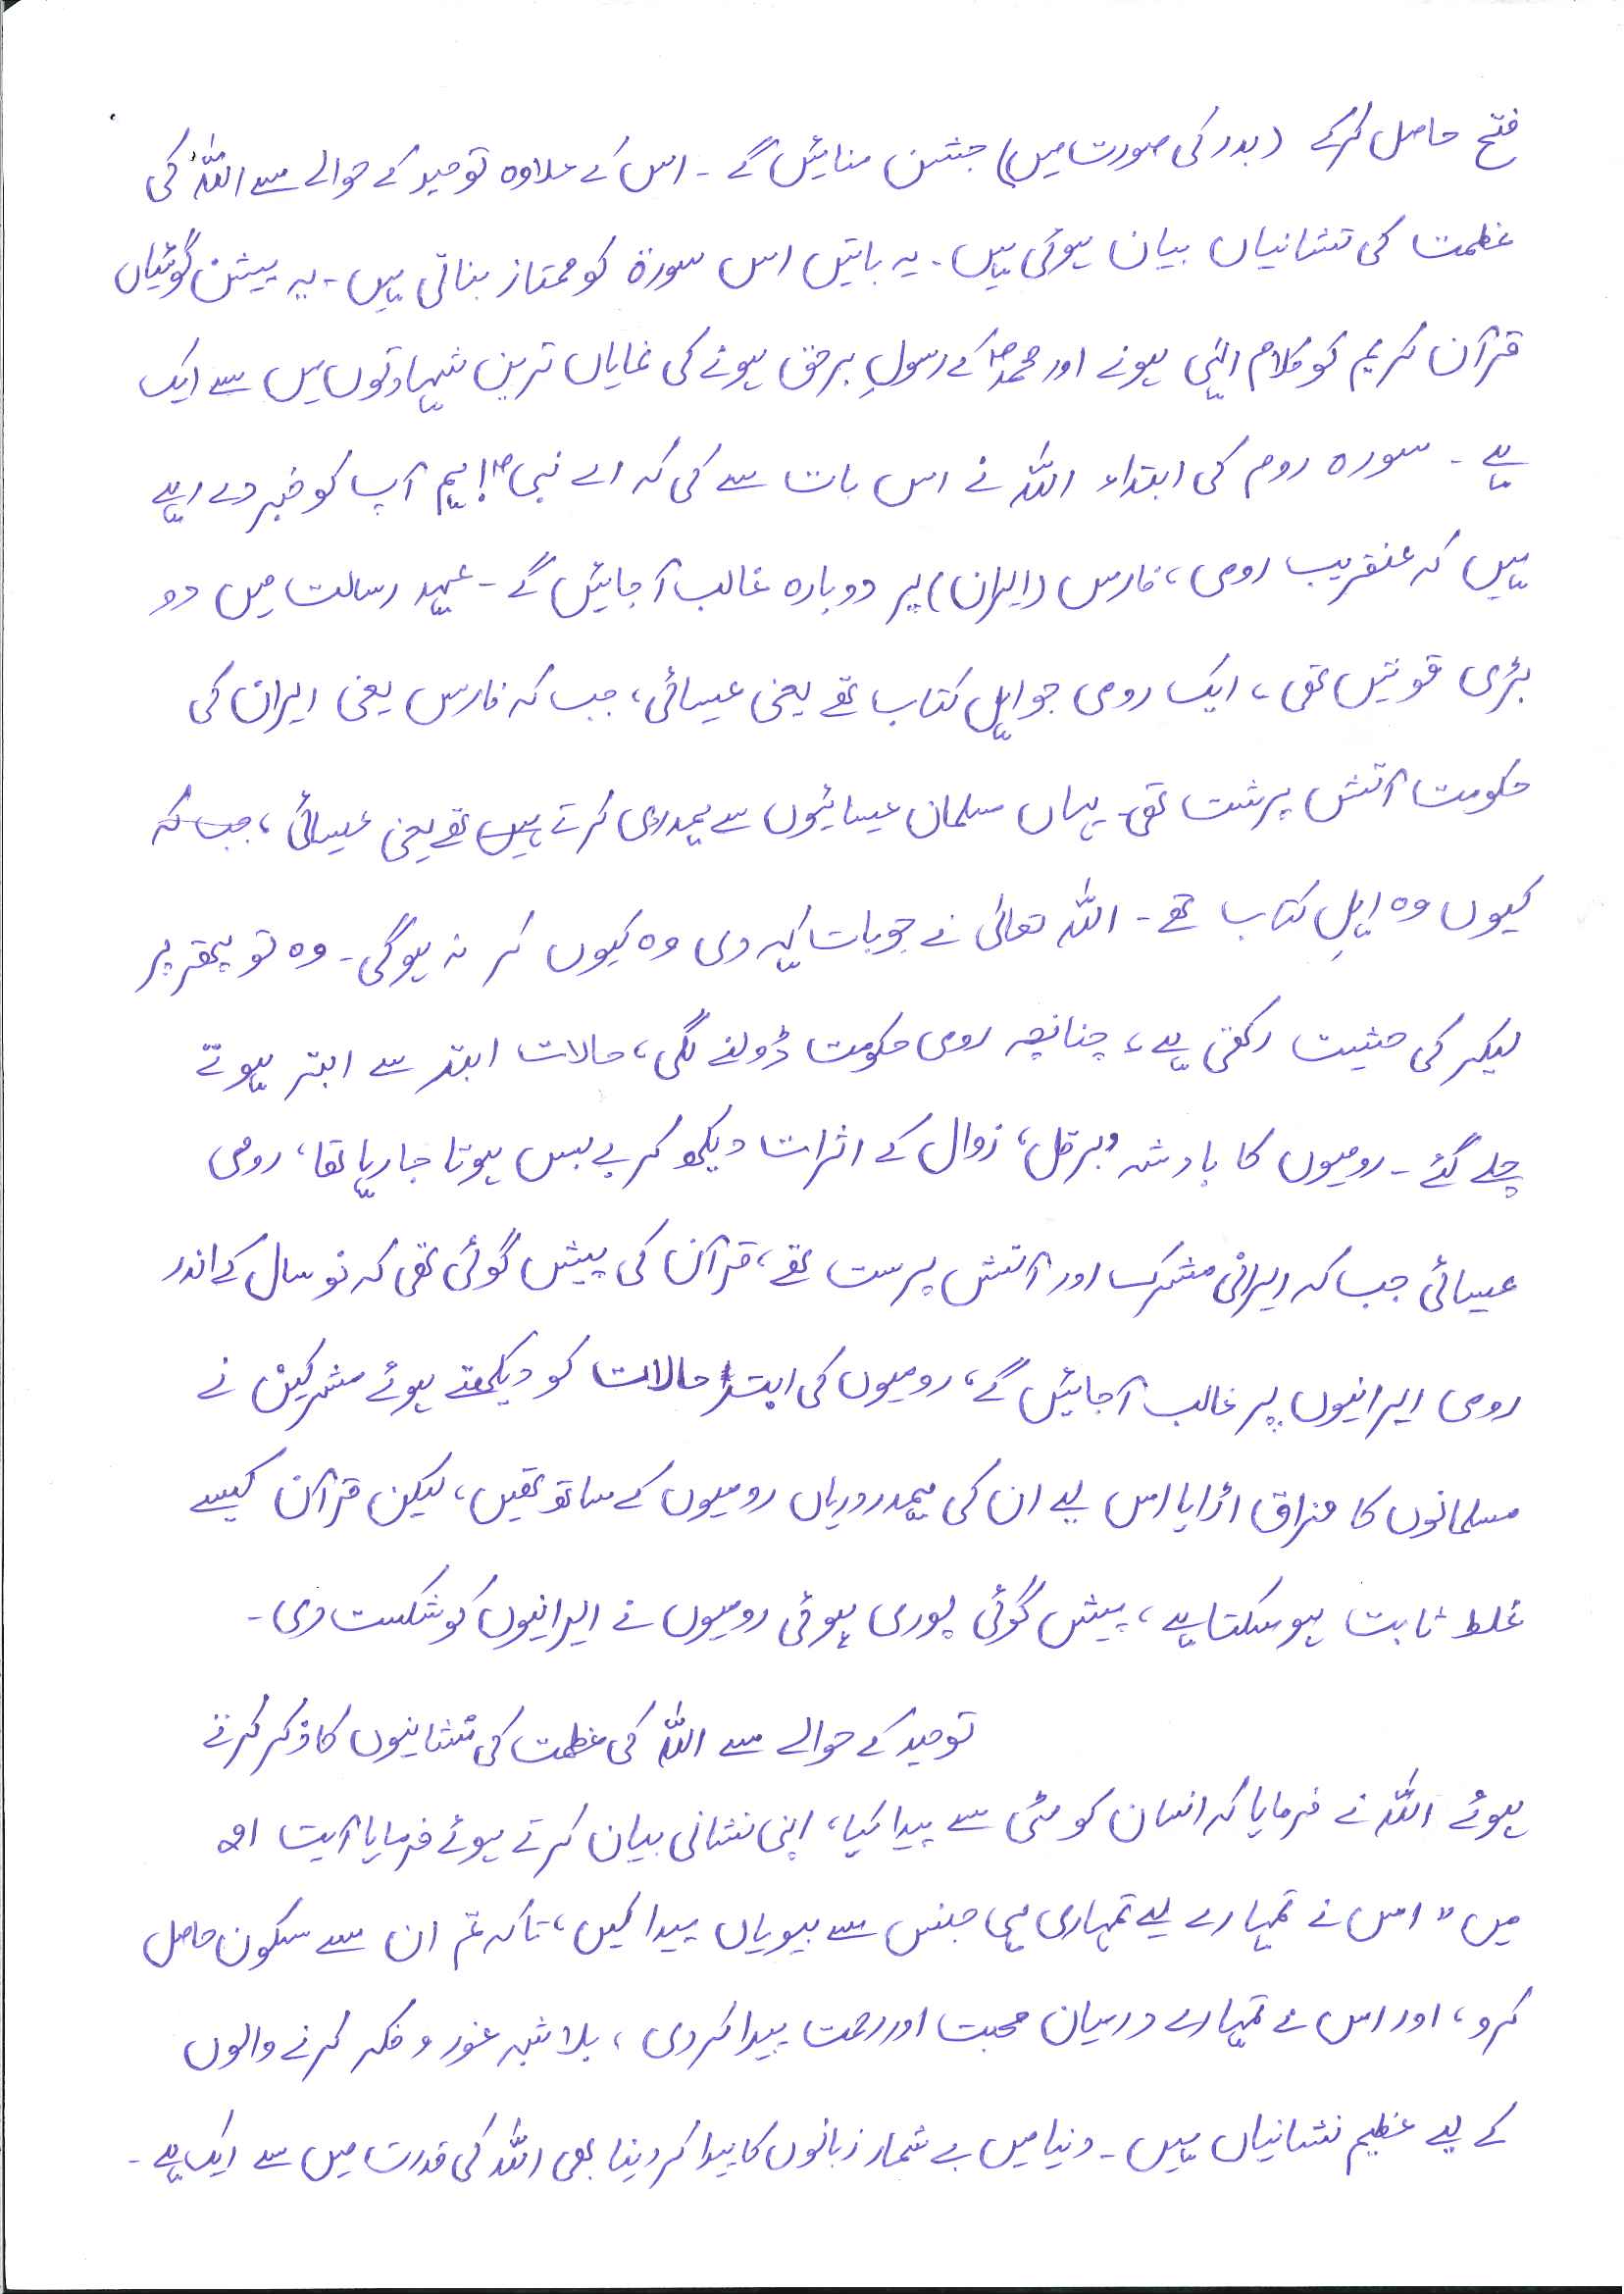 فتح حاصل کرکے (بدر کی صورت میں) جشن منائیں گے ۔ اس کے علاوہ توحید کے حوالے سے اللہ کی
عظمت کی نشانیاں بیان ہوئی ہیں ۔ یہ باتیں اس سورۃ کو ممتاز بناتی ہیں ۔ یہ پیشن گوئیاں
قرآن کریم کو کلام الہٰی ہونے اور محمدؐ کے رسولِ برحق ہونے کی نمایاں ترین شہادتوں میں سے ایک
ہے ۔ سورہ روم کی ابتداء اللہ نے اس بات سے کی کہ اے نبیؐ! ہم آپ کو خبر دے رہے
ہیں کہ عنقریب رومی، فارس (ایران) پر دوبارہ غالب آ جائیں گے ۔ عہد رسالت میں دو
بڑی قوتیں تھی، ایک رومی جو اہل کتاب تھے یعنی عیسائی، جب کہ فارس یعنی ایران کی
حکومت آتش پرشت تھی۔ یہاں مسلمان عیسائیوں سے ہمدردی کرتے ہیں تھے یعنی عیسائی، جب کہ
کیوں وہ اہلِ کتاب تھے ۔ اللہ تعالیٰ نے جو بات کہہ دی وہ کیوں کر نہ ہوگی ۔ وہ تو پتھر پر
لیکر کی حثیت رکھتی ہے، چنانچہ رومی حکومت ڈولنے لگی، حالات ابتر سے ابتر ہوتے
چلے گئے ۔ رومیوں کا بادشہ ’ہرقل‘ زوال کے اثرات دیکھ کر بے بس ہوتا جا رہا تھا، رومی
عیسائی جب کہ ایرانی مشرک اور آتش پرست تھے، قرآن کی پیش گوئی تھی کہ نو سال کے اندر
رومی ایرانیوں پر غالب آجائیں گے، رومیوں کی ابتر حالات کو دیکھتے ہوئے مشرکین نے
مسلمانوں کا مزاق اڑایا اس لیے ان کی ہمدردریاں رومیوں کے ساتھ تھیں، لیکن قرآن کیسے
غلط ثابت ہوسکتا ہے، پیش گوئی پوری ہوئی رومیوں نے ایرانیوں کو شکست دی ۔
توحید کے حوالے سے اللہ کی عظمت کی نشانیوں کا ذکر کرتے
ہوئے اللہ نے فرمایا کہ انسان کو مٹی سے پیدا کیا، اپنی نشانی بیان کرتے ہوئے فرمایا آیت ۲۱
میں " اس نے تمہارے لیے تمہاری ہی جنس سے بیویاں پیدا کیں، تاکہ تم ان سے سکون حاصل
کرو، اور اس نے تمہارے درمیان محبت اور رحمت پیدا کردی، بلا شبہ غور و فکر کرنے والوں
کے لیے عظیم نشانیاں ہیں ۔ دنیا میں بے شمار زبانوں کا پیدا کر دینا بھی اللہ کی قدرت میں سے ایک ہے ۔